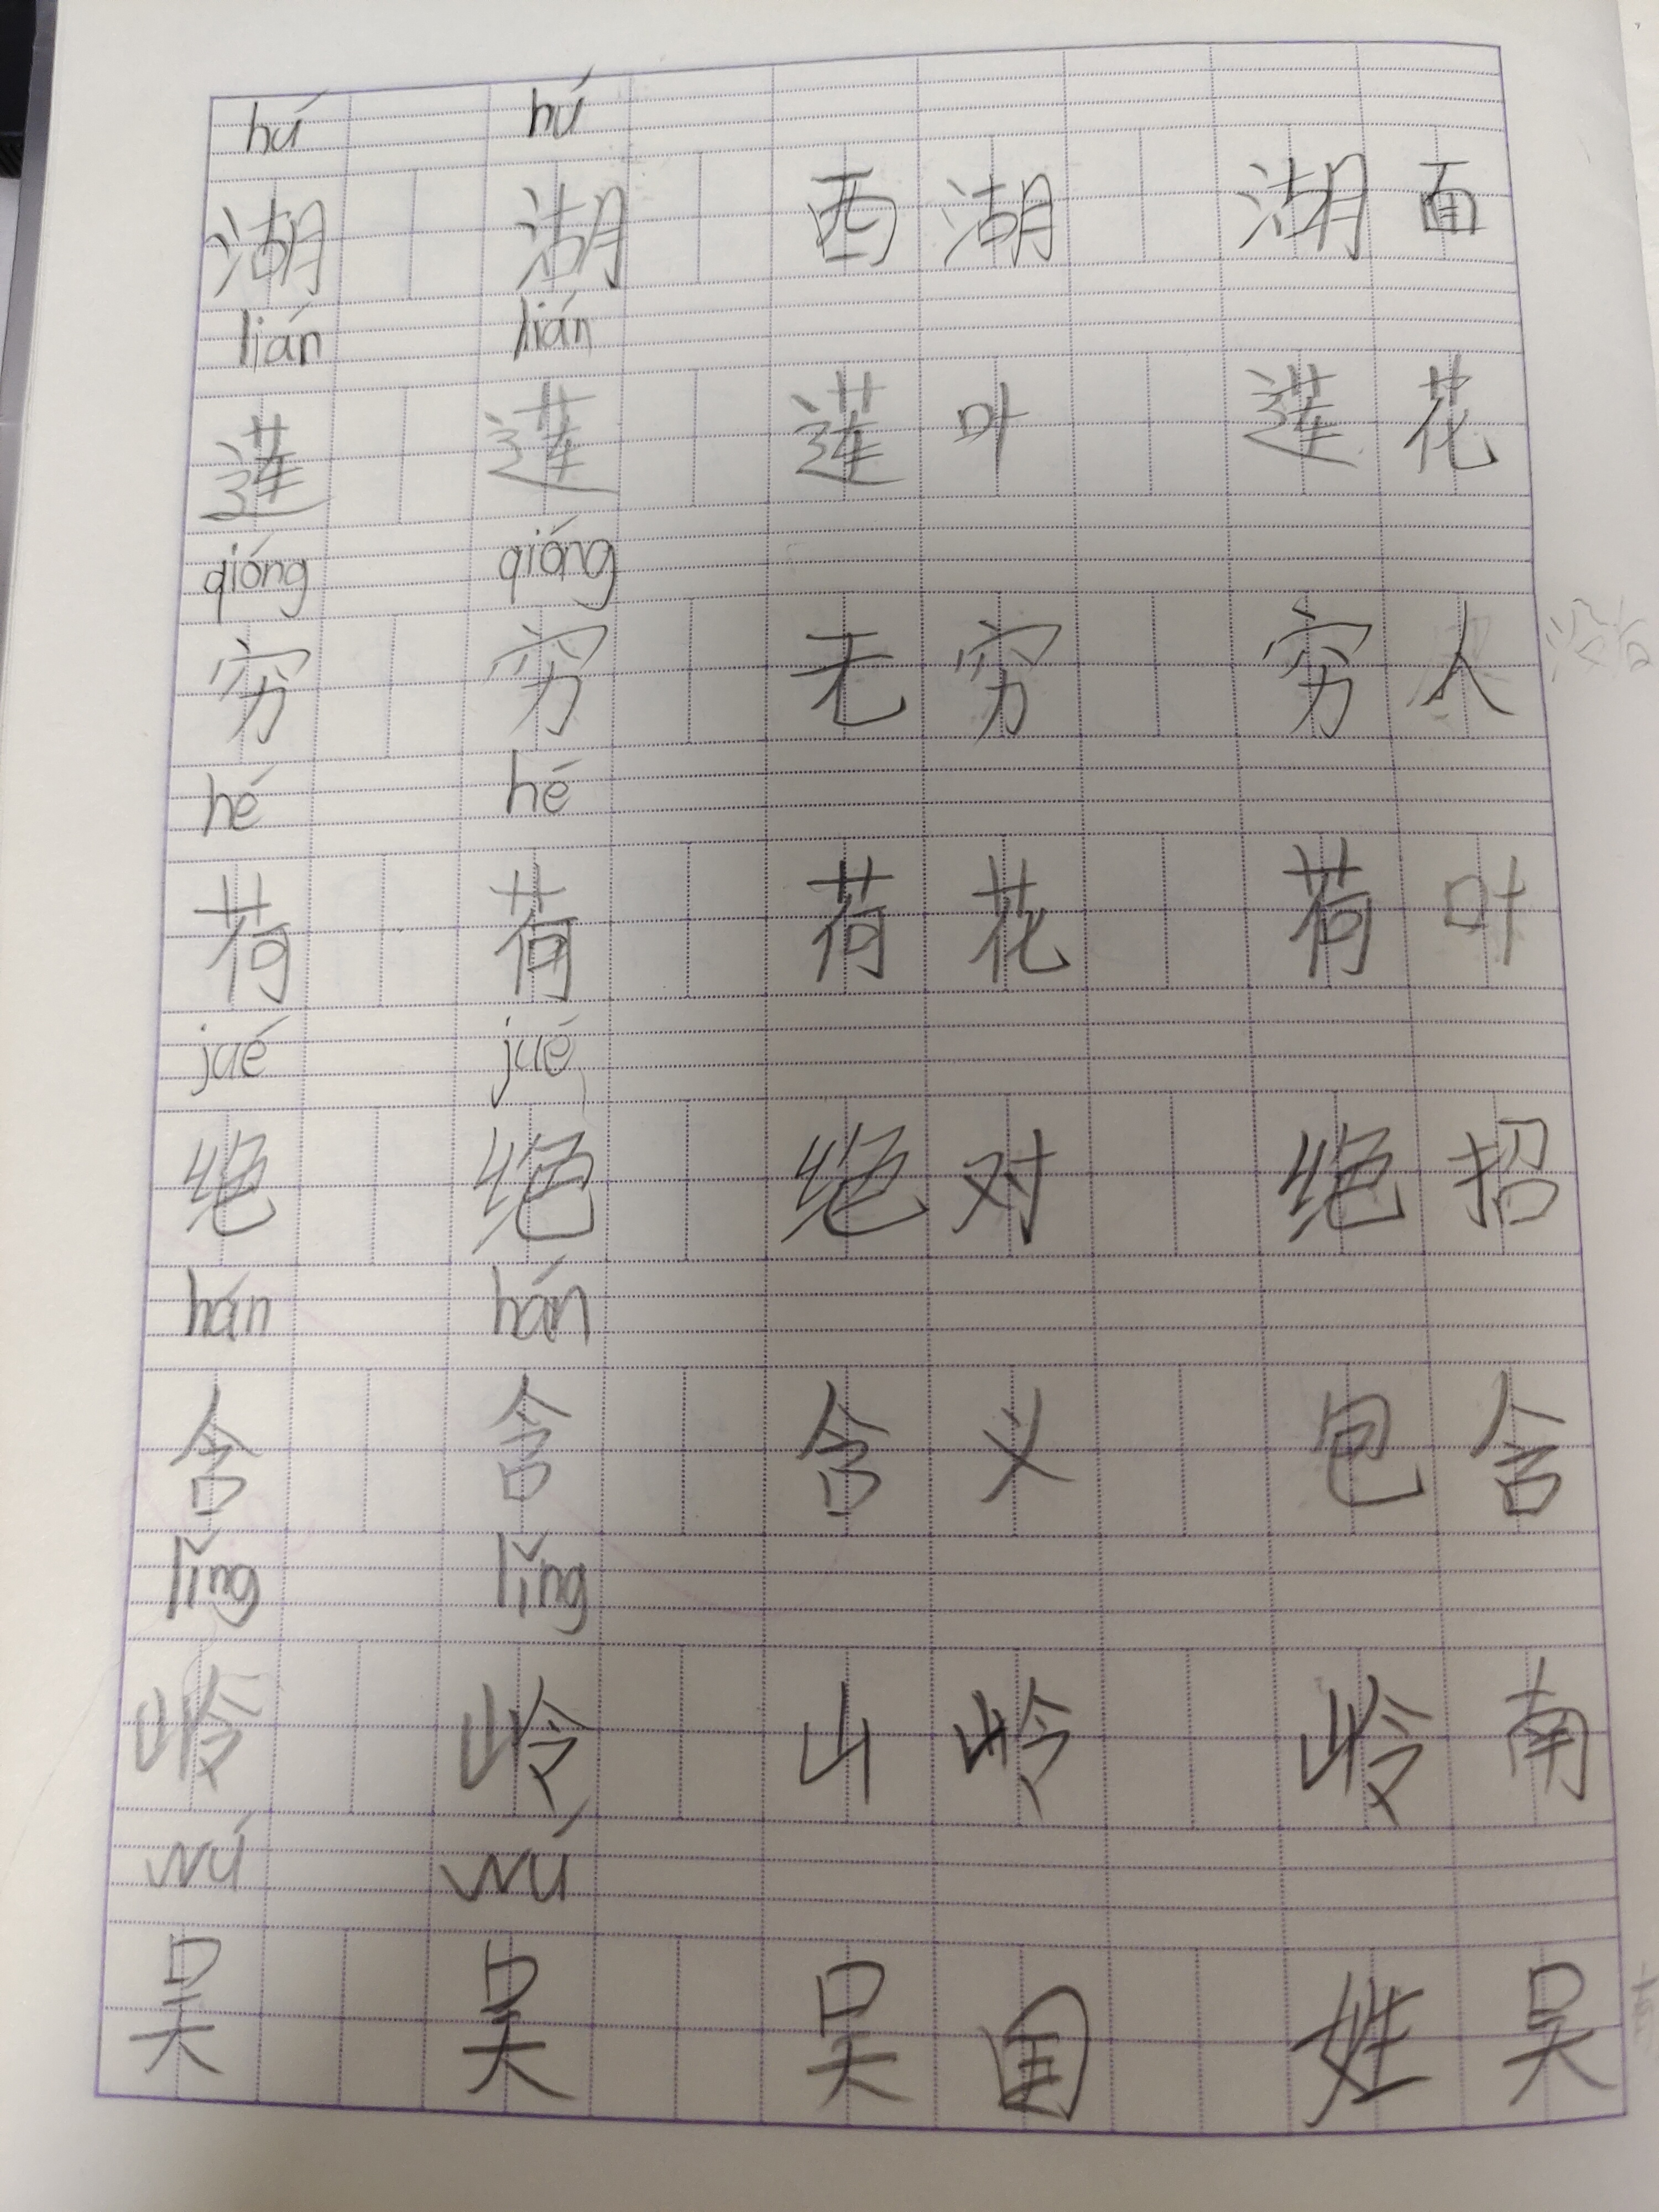 hú hú
湖 湖 西湖 湖面
lián lián
莲 莲 莲叶 莲花
qióng qióng
穷 穷 无穷 穷人
hé hé
荷 荷 荷花 荷叶
jué jué
绝 绝 绝对 绝招
hán hán
含 含 含义 包含
lǐng lǐng
岭 岭 山岭 岭南
wú wú
吴 吴 吴国 姓吴